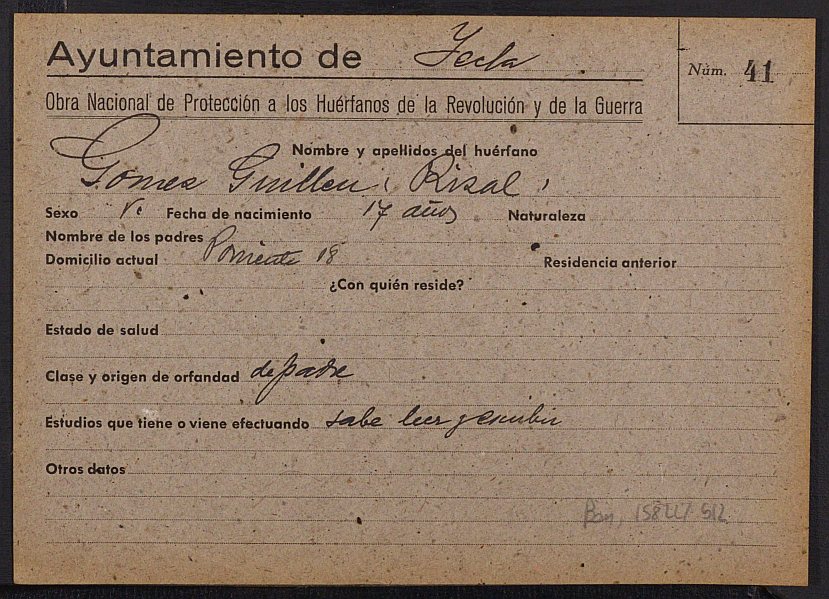 Ayuntamiento de Yecla
Núm. 41
Obra Nacional de Protección a los Huérfanos de la Revolución y de la Guerra
Nombre y apellidos del huérfano
Gomez Guillen, Rizal,
Sexo V. Fecha de nacimiento 17 años Naturaleza
Nombre de los padres
Domicilio actual Poniente 18 Residencia anterior
¿Con quién reside?
Estado de salud
Clase y origen de orfandad de padre
Estudios que tiene o viene efectuando sabe leer y escribir
Otros datos